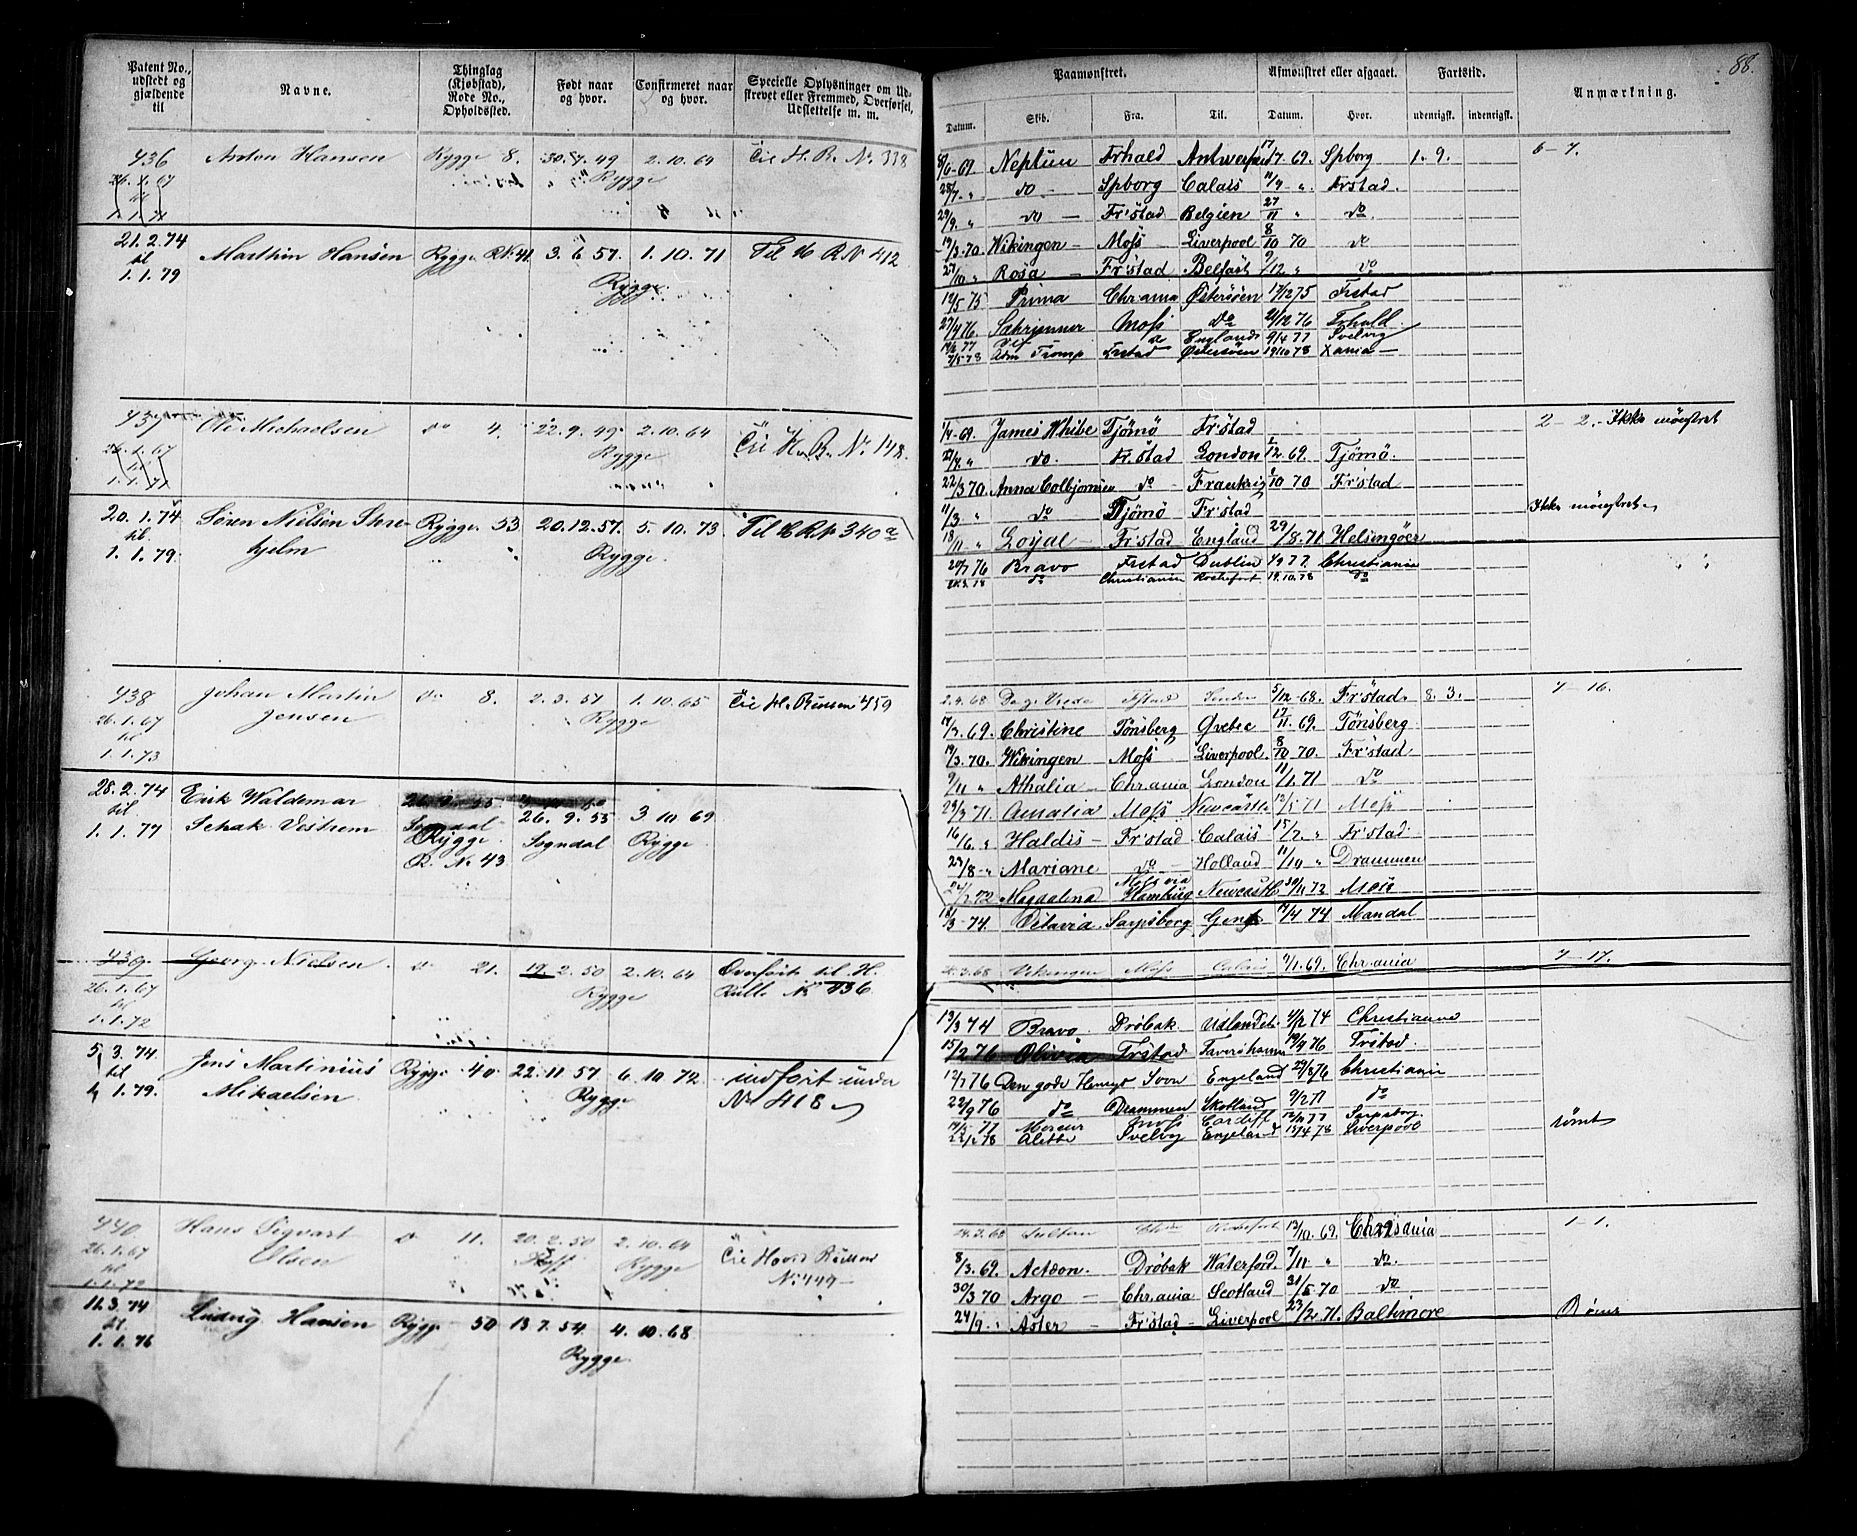 88.
Patent No., udstedt og gjældende til
Navne.
Thinglag (Kjøbstad), Rode No., Opholdssted.
Født naar og hvor.
Confirmeret naar og hvor.
Specielle Oplysninger om Udskrevet eller Fremmed, Overførsel, Udslettelse m. m.
Paamønstret.
Afmønstret eller afgaaet.
Fartstid.
Anmærkning.
Datum.
Skib.
Fra.
Til.
Datum.
Hvor.
udenrigst.
indenrigst.
436 Anton Hansen Rygge 8. 30. 7. 49 2.10.64 Til H. R. No 338
26.1.67 Rygge
til
1.1.71
21.2.74 Marthin Hansen Rygge RN. 41 3.6.57. 1.10.71 Til H RN 412
til Rygge
1.1.79
437 Ole Michaelsen do 4. 22.9.49 2.10.64 Til H. R. No 148.
26.1.67 Rygge
til
1.1.71
20.1.74 Søren Nielsen Rygge 53 20.12.57. 5.10.73 Til H RN 340 a
til hjelm Rygge
1.1.79.
438 Johan Martin do 8. 2.3.51 1.10.65 Til H. Rullen 459
26.1.67 Jensen Rygge
til
1.1.73
28.2.74 Erik Waldemar
til Schak Vestrem Sogndal 26.9.55 3 10 69
1.1.77 Rygge Sogndal Rygge
R. No 43
439 Georg Nielsen do 21. 19.2.50 2.10.64 Overført til H.
26.1.67 Rygge Rulle No 436
til
1.1.72
5.3.74 Jens Martinius Rygge 40 22.11.57 6.10.72 indført under
til Mikaelsen Rygge No 418
1.79.
440 Hans Sigvart do 11. 20.2.50 2.10.64 Til Hoved Rullens
26.1.67 Olsen Rygge No 449
til
1.1.72
11.3.74 Ludvig Hansen Rygge 50 13.7.54. 4.10.68
til Rygge
1.1.76
8/6-69. Neptun Frhald Antwerpen 17/7 69. Spborg 1. 9. 6-7.
28/7. " do Spborg Calais 11/9 " Frstad.
29/9. " do Fr:stad Belgien 27/11 " do
19/3.70. Wikingen Moss Liverpool 8/10 70 do
27/10 " Rosa Fr:stad Belfast 9/12 " do
12/5 75 Prima Chr.ania Østersøen 13/12 75 Frstad
27/4 76 Sæhrimner Moss do 21/12 76 Frhald
19/2 77 do do England 9/4 77 Svelvig
7/5 78 Adm Tromp Frstad Østersøen 19/10 78 Xania
1/4-69. James White Tjømø Fr:stad 2-2. Ikke mønstret
27/4. " do. Fr.stad London 1/12 69. Tjømø.
22/3 70. Anna Colbjørnsen do Frankrig 8/10 70 Fr:stad
11/3 " do Tjømø Fr:stad Ikke mønstret
18/11 " Loyal Fr:stad England 29/8.71. Helsingöer
20/7 76 Bravo Frstad Dublin 1/9 77 Christiania
do Christiania Rochefort 19.10.78 do
2.4.68 Fr.stad London 5/12-68. Fr:stad. 8. 3. 7-16.
17/3.69. Christine Tønsberg Qvebec 17/11.69. Tønsberg.
19/3.70. Wikingen Moss Liverpool. 8/10 70. Fr:stad
9/11 " Athalia Chr.ania London 11/1.71 do
29/3 71. Amalia Moss Newcastle 12/5 71 Moss
16/6. " Haldis Fr:stad Calais 15/7. " Fr:stad.
23/8 " Mariane do Holland 11/10 " Drammen
24/7 72 Magdalena Moss via Hamburg Newcastle 30/11 72 Moss
18/3-74. Octavia. Sarpsborg Genf 14/4 74 Mandal
Vikingen Moss Calais 9/1.69. Chr.ania 7-17.
13/3 74 Bravo Drøbak Udlandet. 4/12 74 Christiania
15/2 76 Olivia Frstad Faversham 19/9 76 Frstad
12/7 76 Den gode Hensigt Svon England 29/8 76 Christiania
22/9 76 do Drammen Skotland 9/2 77 do
14/5 77 Mercur Moss Cardiff 12/11 77 Sarpsborg.
22/2 78 Alette Svelvig England 15/4 78 Liverpool rømt
Sultan Rochefort 13/10.69. Christiania 1-1.
8/3.69. Actæon. Drøbak Waterford. 7/11 " do.
30/3 70 Argo Chr.ania Scotland 31/5 70 do
24/9. " Aster Fr:stad Liverpool 23/2 71. Baltimore Römt